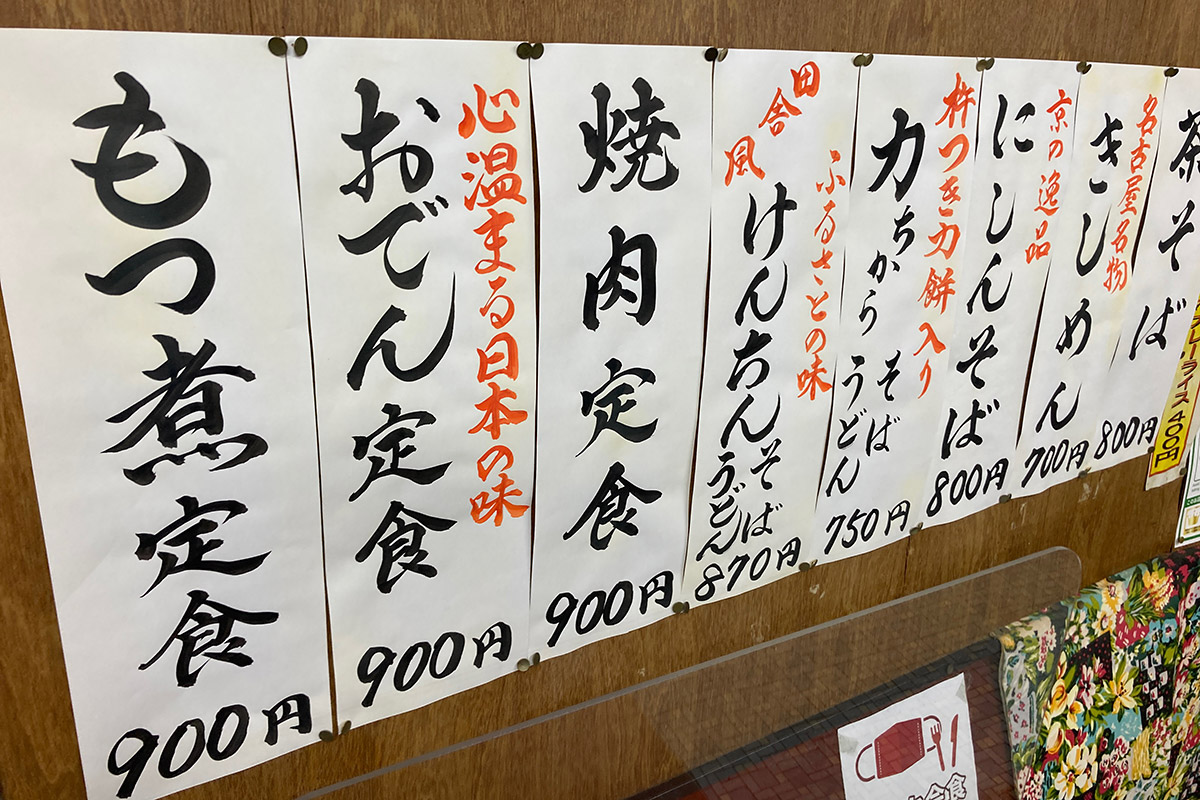 もつ煮定食
900円
心温まる日本の味
おでん定食
900円
焼肉定食
900円
田舎風
ふるさとの味
けんちんそば
うどん
870円
杵つき力餅入り
力ちから
そば
うどん
750円
にしんそば
800円
京の逸品
きしめん
700円
名古屋名物
茶そば
800円
カレーライス400円